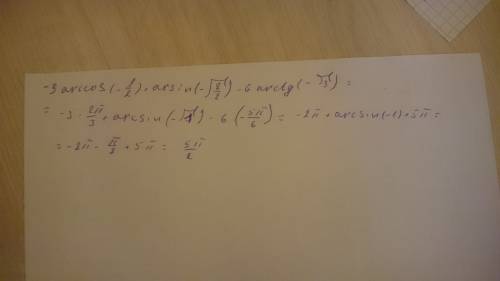 -3 arccos(-1/2) + arsin(-√(2/2)) - 6 arctg(-√3) =
= -3 · 2π/3 + arcsin(-√1) - 6(-5π/6) = -2π + arcsin(-1) + 5π =
= -2π - π/2 + 5π = 5π/2